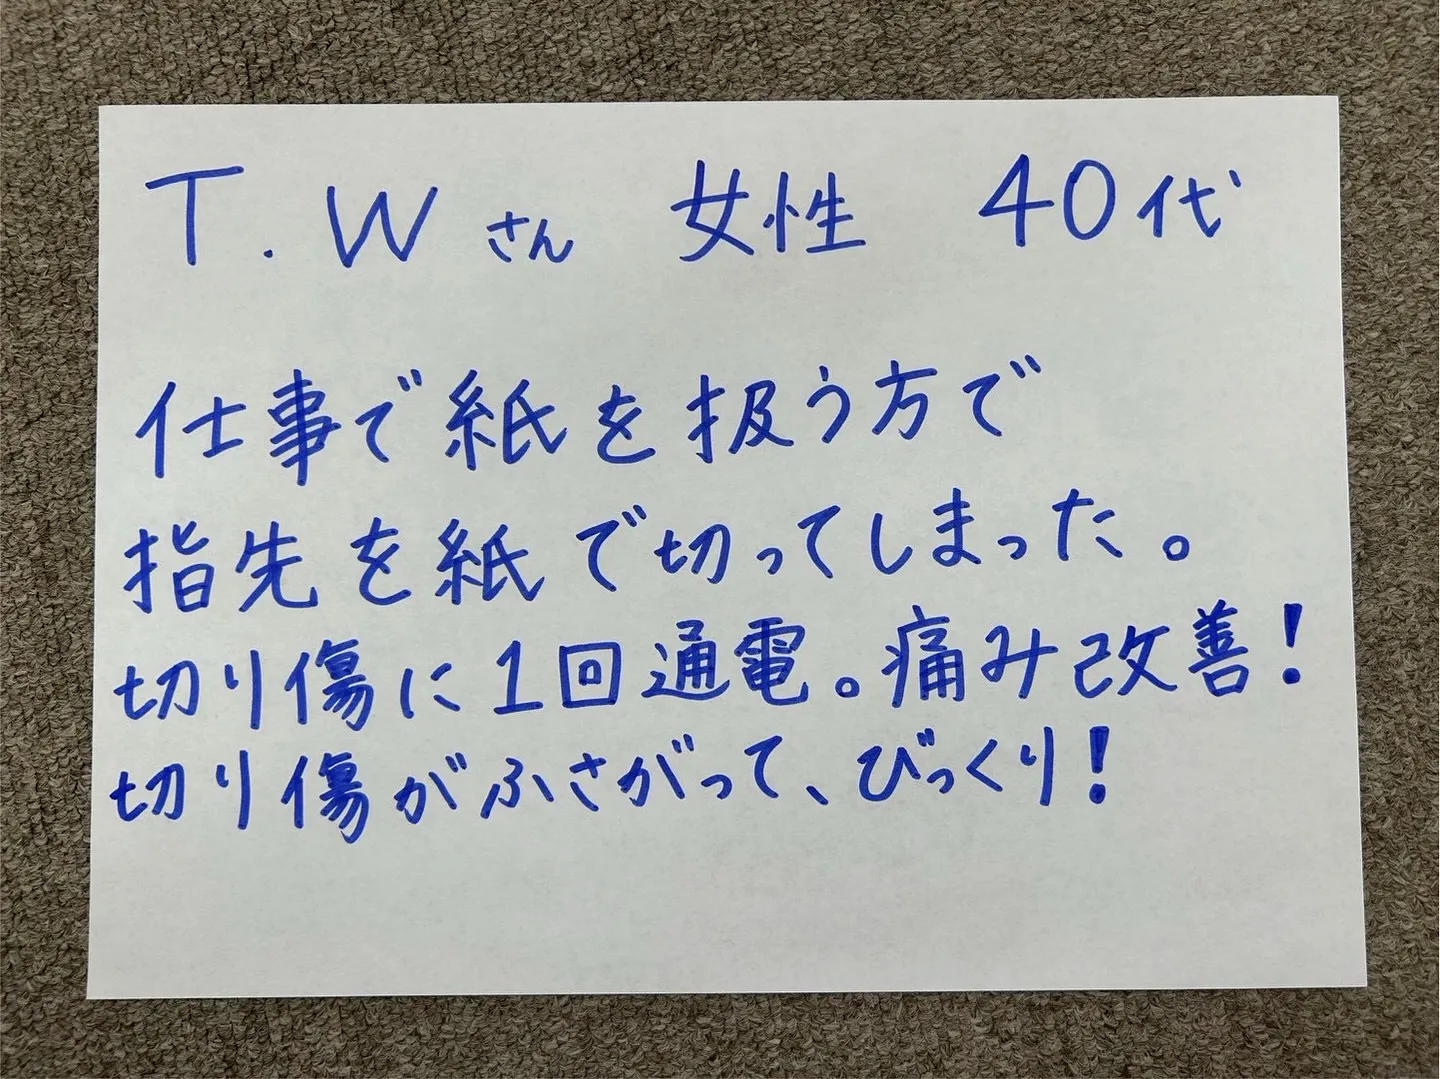 T.Wさん 女性 40代
仕事で紙を扱う方で
指先を紙で切ってしまった。
切り傷に1回通電。痛み改善!
切り傷がふさがって、びっくり!